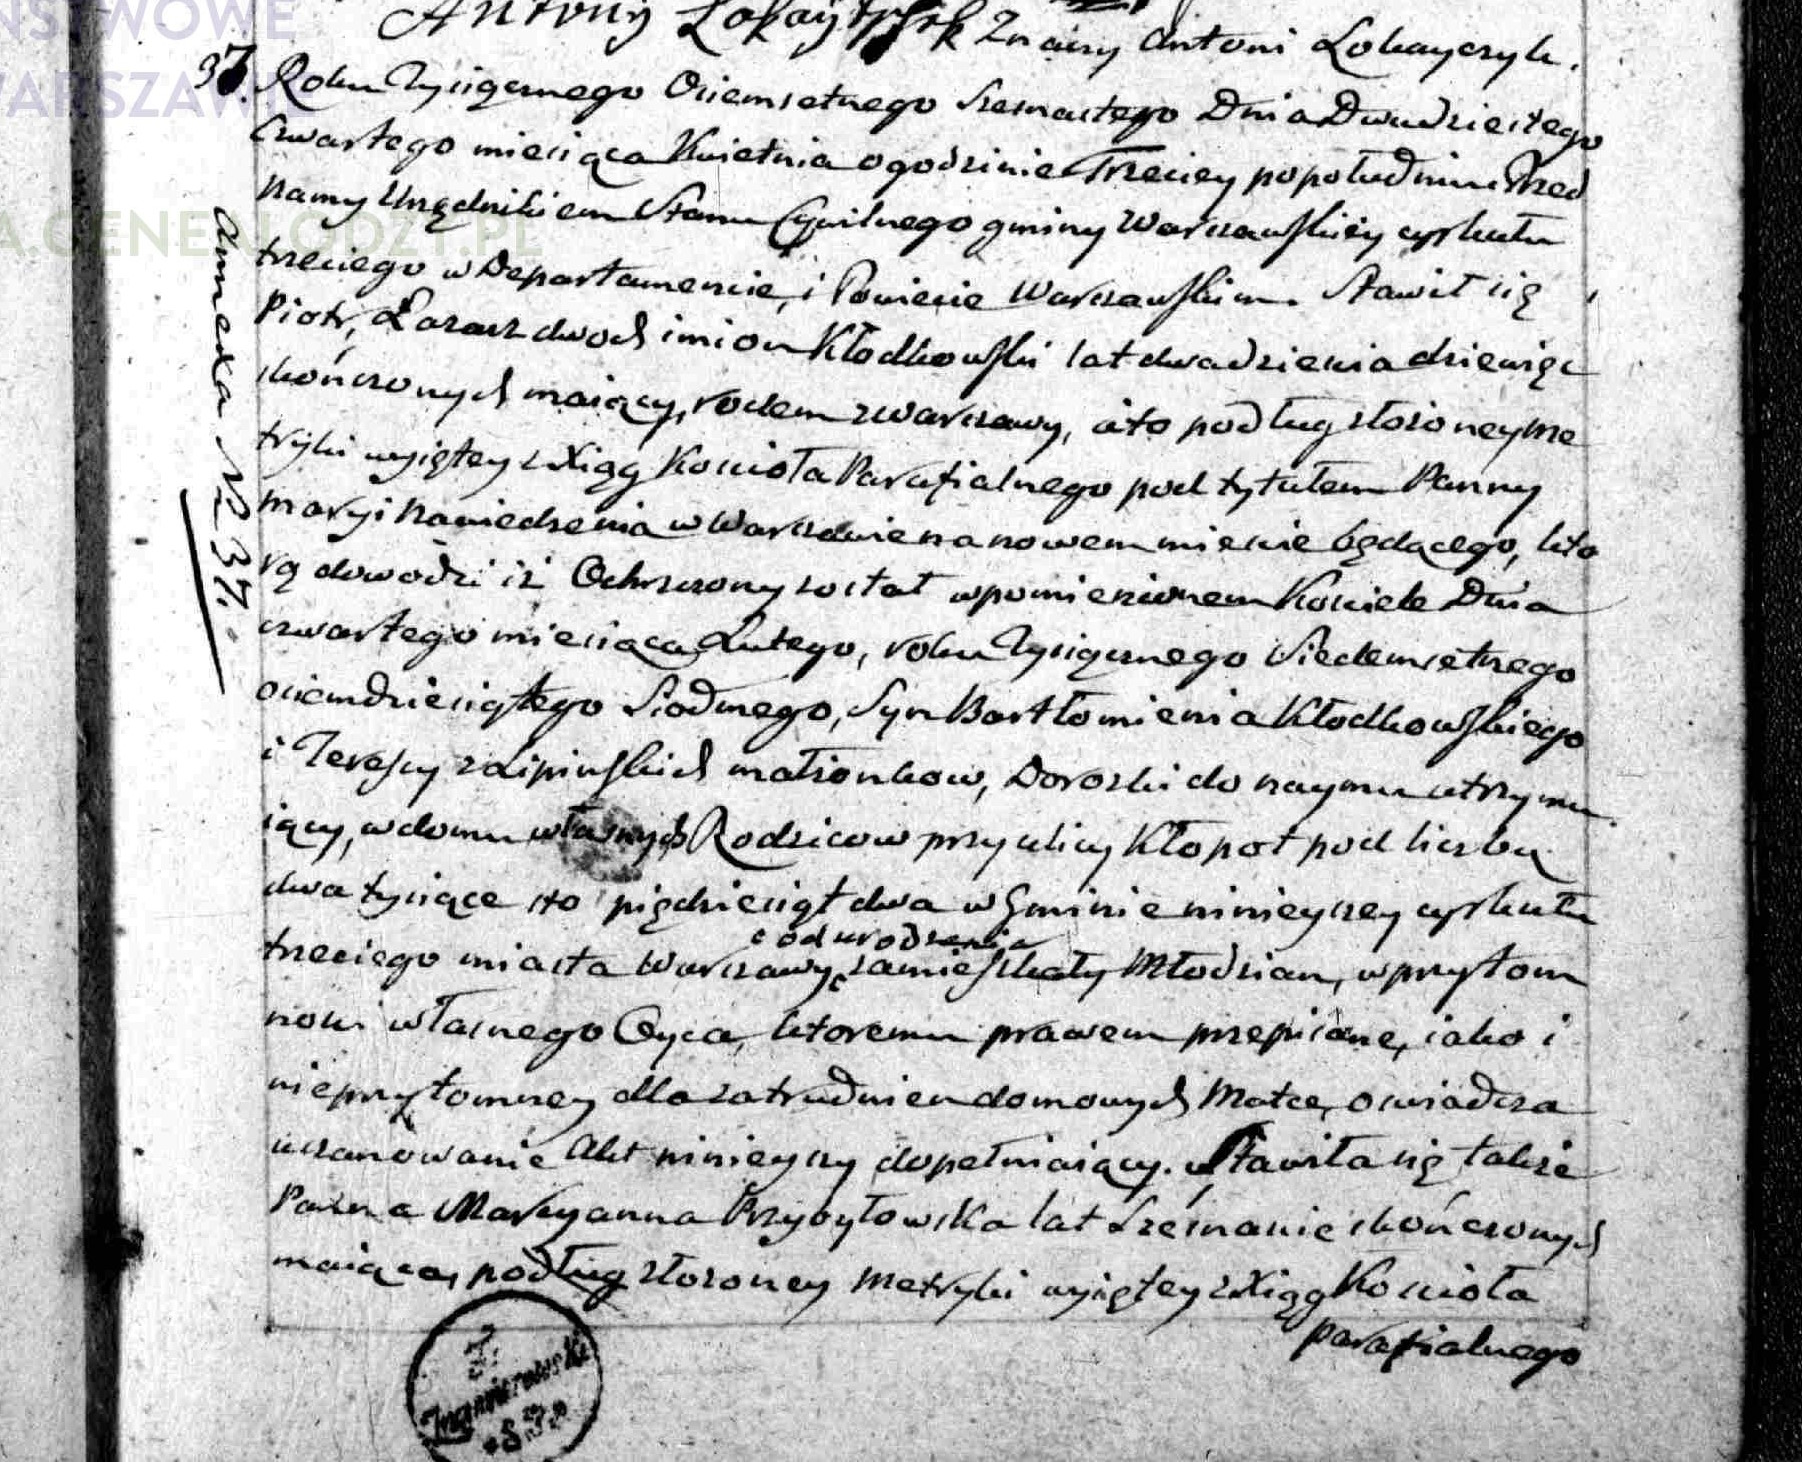 Antoni Łokaytszyk Znaczy Antoni Lokayczyk.
37. Roku Tysiącznego Osiemsetnego Szesnastego Dnia Dwudziestego
Czwartego miesiąca Kwietnia o godzinie Trzeciey popołudniu Przed
Namy Urzędnikiem Stanu Cywilnego gminy Warszawskiey cyrkułu
trzeciego w Departamencie, i Powiecie Warszawskim. Stawił się
Piotr, Łazarz dwoch imion Kłodkowski lat dwadzieścia dziewięc
skończonych maiący, rodem z Warszawy, a to podług złożoney me
tryki wyiętey z Xiąg Kościoła Parafialnego pod tytułem Panny
Maryi Nawiedzenia w Warszawie na nowem mieście będącego, któ
rą dowodzi iż Ochrzczony został w pomienionem Kościele Dnia
czwartego miesiąca Lutego, roku Tysiącznego Siedemsetnego
osiemdziesiątego Siodmego, Syn Bartłomieia Kłodkowskiego
i Teressy z Lipinskich małżonkow, Dorożki do naymu utrzymu
iący, w domu własnych Rodzicow przy ulicy Kłopot pod liczbą
dwa tysiące sto pięćdziesiąt dwa w Gminie ninieyszey cyrkułu
od urodzenia
trzeciego miasta Warszawy zamieszkały Młodzian, w przytom
ności własnego Oyca, ktoremu prawem przepisane, iako i
nieprzytomney dla zatrudnien domowych Matce, oświadcza
uszanowanie Akt ninieyszy dopełniaiący. Stawiła się także
Panna Maryanna Przybyłowska lat Szesnaście skończonych
maiąca, podług złożoney Metryki wyiętey z Xiąg Kościoła
parafialnego
Annexa N 37.
WARSZAWIE